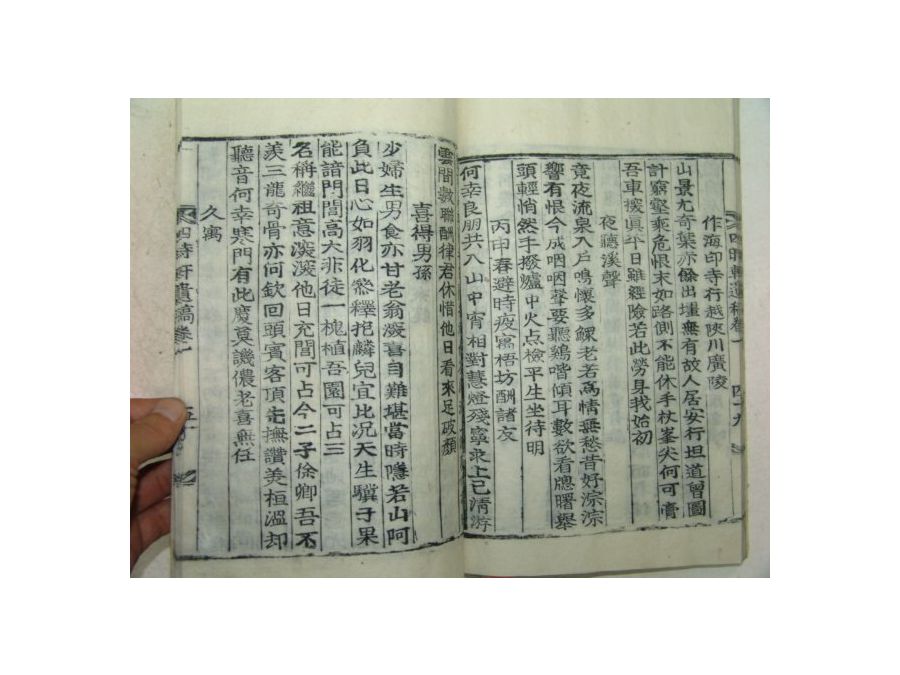 四時軒遺稿卷一
四十九
作海印寺行越陜川廣陵
山景尤奇葉亦餘出壚無有故人居安行坦道曾圖
計窮壑乘危恨末如路側不能休手杖峯尖何可膏
吾車援眞平日雖經險若此勞身我始初
夜聽溪聲
竟夜流泉入戶鳴懷多鰥老若爲情無愁昔好淙淙
響有恨今成咽咽聲要聽鷄喈傾耳數欲看牕曙擧
頭輕悄然手撥爐中火点檢平生坐待明
丙申春避時疫寓梧坊酬諸友
何幸良朋共入山中宵相對慧燈殘寧求上巳淸游
雲間敎聯酬律君休惜他日看來足破顏
喜得男孫
少婦生男食亦甘老翁深喜自難堪當時隱若山阿
負此日心如羽化叅釋抱麟兒宜比况天生驥子果
能諳門閭高大非徒一槐植吾園可占三
名稱繼祖意深深他日充閭可占今二子徐卿吾不
羨三龍奇骨亦何欽回頭賓客頂先撫讚美桓溫却
聽音何幸寒門有此慶莫譏儂老喜無任
久寓
四時軒遺稿卷一
五十